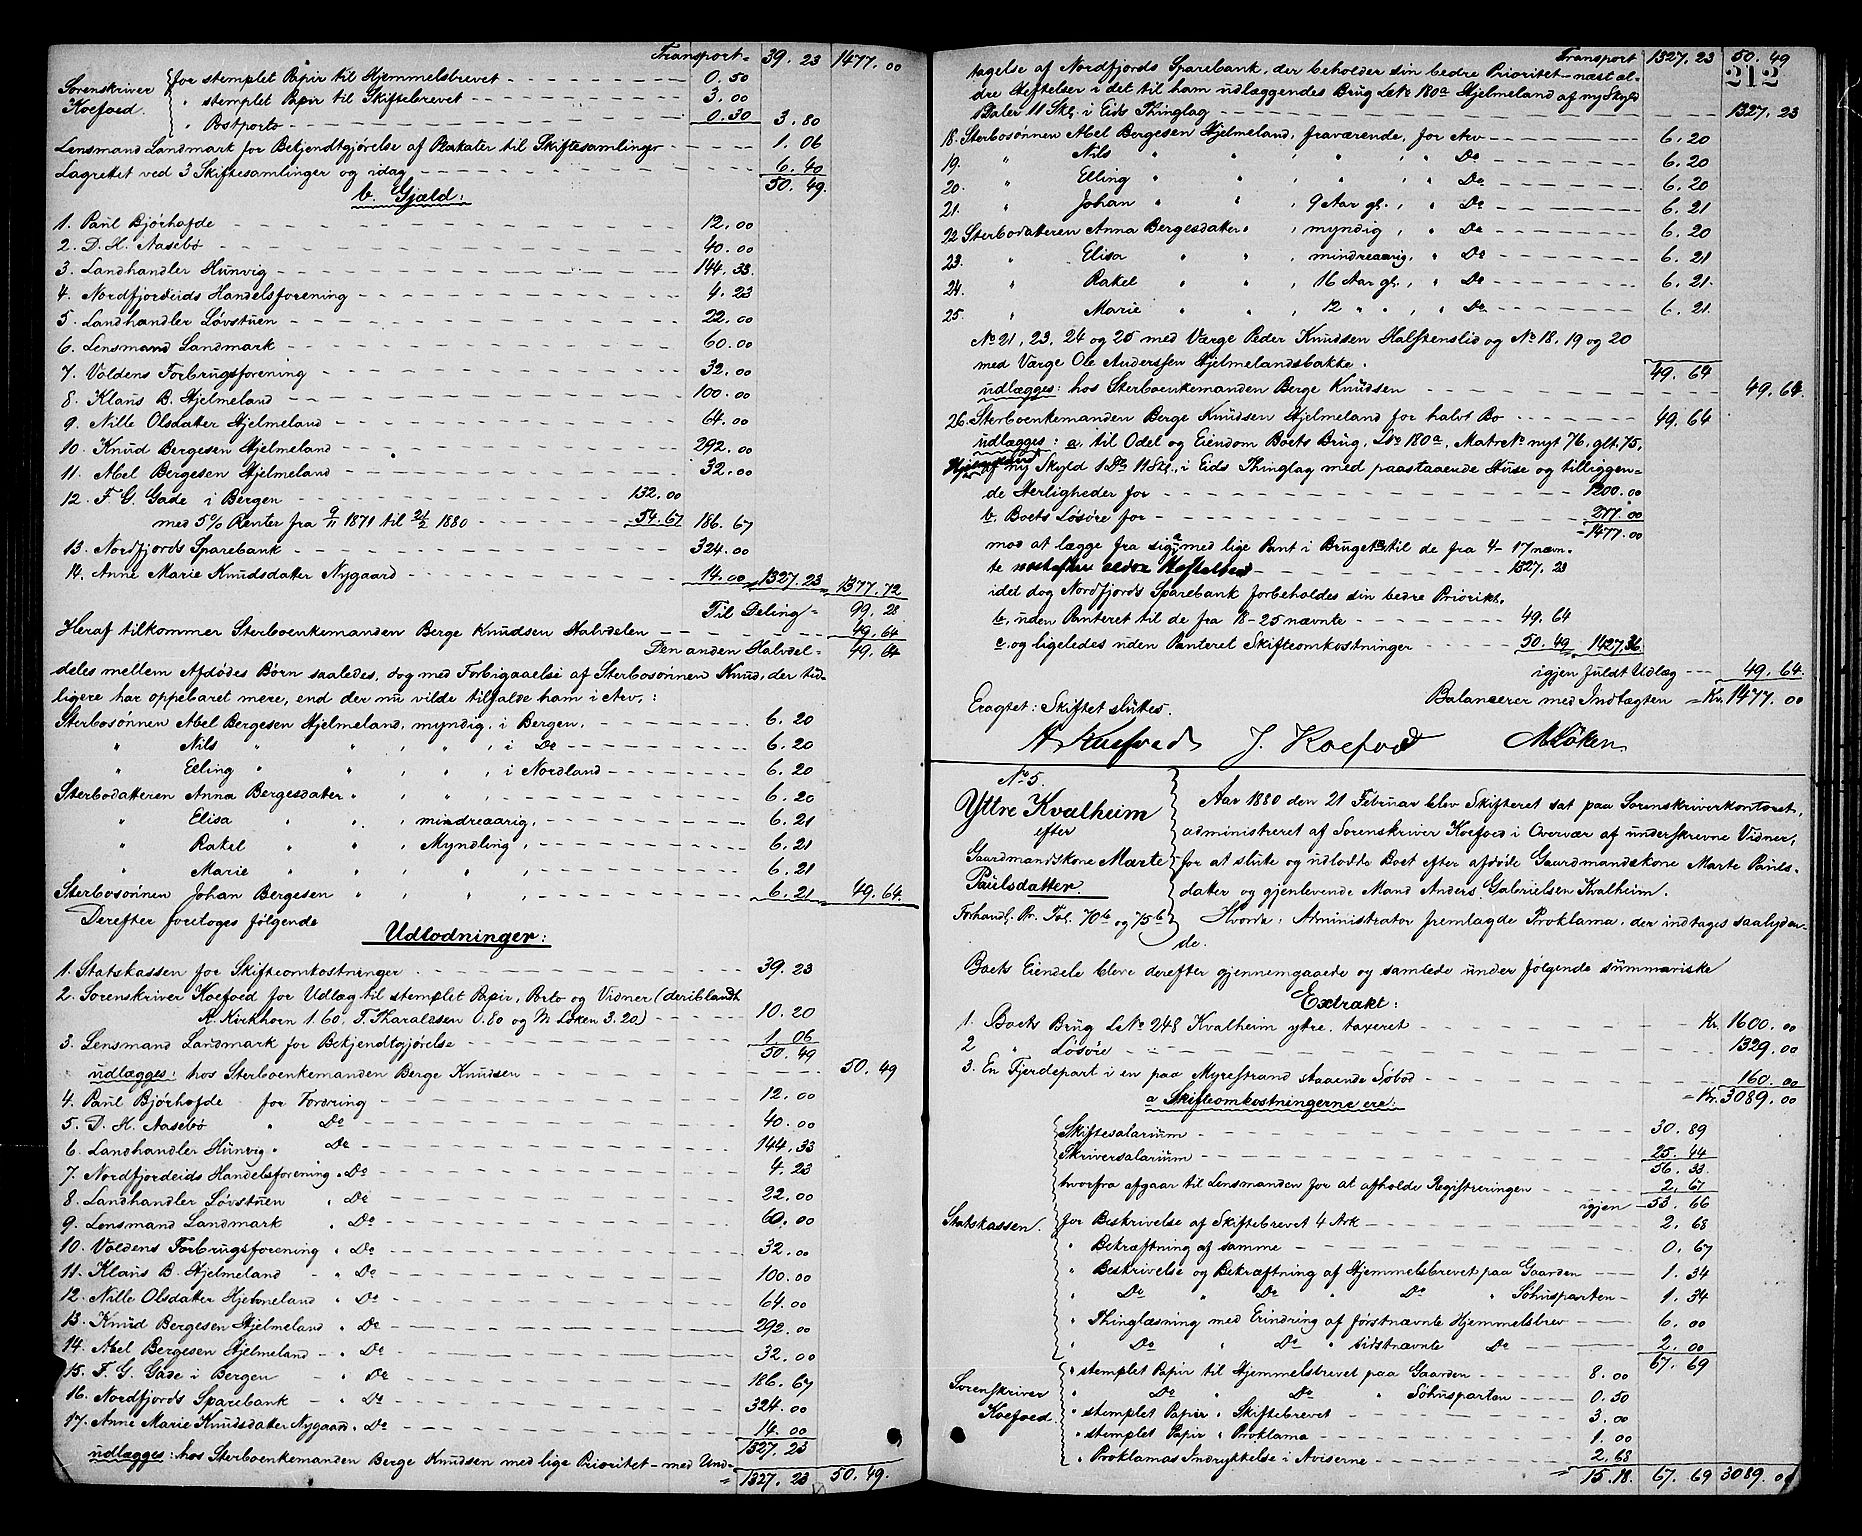 Transport = 39. 23 1477. 00
Sorenskriver for stemplet Papir til Hjemmelsbrevet 0. 50
Koefoed. " stemplet Papir til Skiftebrevet 3. 00
" Postporto 0. 30 3. 80
Lensmand Landmark for Bekjendtgjørelse af Plakater til Skiftesamlinger 1. 06
Lagrettet ved 3 Skiftesamlinger og idag 6. 40
50. 49.
b. Gjæld:
1. Paul Bjørhofde 12. 00
2. D. H. Aasebø 40. 00
3. Landhandler Hunvig 144. 33
4. Nordfjordeids Handelsforening 4. 23
5. Landhandler Løvstuen 22. 00
6. Lensmand Landmark 60. 00
7. Voldens Forbrugsforening 32. 00
8. Klaus B. Hjelmeland 100. 00
9. Nille Olsdatter Hjelmeland 64. 00
10. Knud Bergesen Hjelmeland 292. 00
11. Abel Bergesen Hjelmeland 32. 00
12. F. G. Gade i Bergen 132. 00
med 5% Renter fra 9/11 1871 til 21/2 1880 54. 67 186. 67
13. Nordfjords Sparebank 324. 00
14. Anne Marie Knudsdatter Nygaard 14. 00 1327. 23 1377. 72
Til Deling = 99. 28
Heraf tilkommer Sterboenkemanden Berge Knudsen Halvdelen 49. 64
Den anden Halvdel = 49. 64
deles mellem Afdødes Børn saaledes, dog med Forbigaaelse af Sterbosønnen Knud, der tid-
ligere har oppebaret mere, end der nu vilde tilfalde ham i Arv,:
Sterbosønnen Abel Bergesen Hjelmeland, myndig, i Bergen. 6. 20
" Nils " " , " , i Do 6. 20
" Elling " " , " , i Nordland 6. 20
Sterbodatteren Anna Bergesdatter " , " , 6. 20
" Elisa " " , mindreaarig, 6. 21
" Rakel " " , Myndling, 6. 21
" Marie " " , " , 6. 21
Sterbosønnen Johan Bergesen " , " , 6. 21 49. 64.
Derefter foretoges følgende
Udlodninger:
1. Statskassen for Skifteomkostninger 39. 23
2. Sorenskriver Koefoed for Udlæg til stemplet Papir, Porto og Vidner (deriblandt
A. Kirkhorn 1. 60, T. Tharaldsen 0. 80 og M. Løken 3. 20) 10. 20
3. Lensmand Landmark for Bekjendtgjørelse 1. 06
50. 49
udlægges: hos Sterboenkemanden Berge Knudsen 50. 49
4. Paul Bjørhofde for Fordring 12. 00
5. D. H. Aasebø " Do 40. 00
6. Landhandler Hunvig " Do 144. 33
7. Nordfjordeids Handelsforening " Do 4. 23
8. Landhandler Løvstuen " Do 22. 00
9. Lensmand Landmark " Do 60. 00
10. Voldens Forbrugsforening " Do 32. 00
11. Klaus B. Hjelmeland " Do 100. 00
12. Nille Olsdatter Hjelmeland " Do 64. 00
13. Knud Bergesen Hjelmeland " Do 292. 00
14. Abel Bergesen Hjelmeland " Do 32. 00
15. F. G. Gade i Bergen " Do 186. 67
16. Nordfjords Sparebank " Do 324. 00
17. Anne Marie Knudsdatter Nygaard " Do 14. 00
1327. 23
udlægges: hos Sterboenkemanden Berge Knudsen med lige Prioritet – med Und-
= 1327. 23 50. 49.
Transport 1327. 23 50. 49
212
tagelse af Nordfjords Sparebank, der beholder sin bedre Prioritet – næst æl-
dre Heftelser i det til ham udlæggendes Brug LNo 180a Hjelmeland af ny Skyld
1 Daler 11 Skl. i Eids Thinglag 1327. 23
18. Sterbosønnen Abel Bergesen Hjelmeland, fraværende, for Arv 6. 20
19. " Nils " " , " , " Do 6. 20
20. " Elling " " , " , " Do 6. 20
21. " Johan " " , 9 Aar gl. , " Do 6. 21
22 Sterbodatteren Anna Bergesdatter " , myndig , " Do 6. 20
23. " Elisa " " , mindreaarig, " Do 6. 21
24. " Rakel " " , 16 Aar gl. , " Do 6. 21.
25. " Marie " " , 12 " " , " Do 6. 21.
No 21, 23, 24 og 25 med Værge Peder Knudsen Halstenslid og No 18, 19 og 20
med Værge Ole Anderssen Hjelmelandsbakke. 49. 64
udlægges: hos Sterboenkemanden Berge Knudsen 49. 64.
26. Sterboenkemanden Berge Knudsen Hjelmeland for halvt Bo 49. 64
udlægges: a, til Odel og Eiendom Boets Brug, LNo 180a, MatrNo nyt 76, glt. 75,
Hjelmeland af ny Skyld 1 Dr 11 Skl., i Eids Thinglag med paastaaende Huse og tilliggen-
de Herligheder for 1200. 00
b. Boets Løsøre for 277. 00
1477. 00
mod at lægge fra sig, a med lige Pant i Bruget til de fra 4–17 nævn-
te næstefter ældre Heftelser 1327. 23
idet dog Nordfjords Sparebank forbeholdes sin bedre Prioritt.
b, uden Panteret til de fra 18–25 nævnte 49. 64
c. og ligeledes uden Panteret Skifteomkostninger 50. 49 1427. 36
igjen fuldt Udlæg 49. 64.
Balancerer med Indtægten = Kr. 1477. 00
Eragtet: Skiftet slutes.
A Koefoed J. Koefoed M Løken
No 5.
Yttre Kvalheim
efter
Gaardmandskone Marte
Paulsdatter.
Forhandl. Pr. Fol. 70b og 75b
Aar 1880 den 21 Februar blev Skifteret sat paa Sorenskriverkontoret,
administreret af Sorenskriver Koefoed i Overvær af underskrevne Vidner,
for at slute og udlodde Boet efter afdøde Gaardmandskone Marte Pauls-
datter og gjenlevende Mand Anders Gabrielsen Kvalheim.
Hvorda: Administrator fremlagde Proklama, der indtages saalyden-
de.
Boets Eiendele bleve derefter gjennemgaaede og samlede under følgende summariske
Extrakt:
1. Boets Brug LNo 248 Kvalheim ytre, taxeret Kr. 1600. 00
2 " Løsøre 1329. 00
3. En Fjerdepart i en paa Myrestrand staaende Søbod 160. 00
= Kr. 3089. 00
a Skifteomkostningerne ere:
Skiftesalarium 30. 89
Skriversalarium 25. 44
56. 33.
hvorfra afgaar til Lensmanden for at afholde Registreringen 2. 67
igjen 53. 66
Statskassen. for Beskrivelse af Skiftebrevet 4 Ark 2. 68
" Bekræftning af samme 0. 67
" Beskrivelse og Bekræftning af Hjemmelsbrevet paa Gaarden 1. 34
" Do " Do " Do " Søhusparten 1. 34
" Thinglæsning med Erindring af førstnævnte Hjemmelsbrev 6. 00
" Do " Do " sidstnævnte Do 2. 00
67. 69
Sorenskriver " stemplet Papir til Hjemmelsbrevet paa Gaarden 8. 00
" Do " Do " Søhusparten 0. 50
Koefoed. " stemplet Papir " Skiftebrevet 3. 00
" stemplet Papir " Proklama 1. 00
" Proklamas Indrykkelse i Aviserne 2. 68
= 15. 18. 67. 69 3089. 00